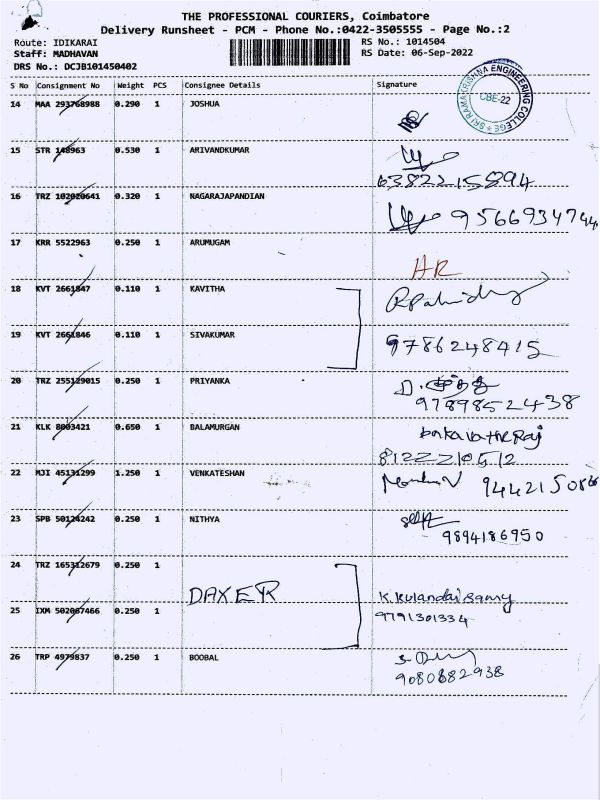 THE PROFESSIONAL COURIERS, Coimbatore
Delivery Runsheet - PCM - Phone No.:0422-3505555 - Page No.:2
Route: IDIKARAI RS No.: 1014504
Staff: MADHAVAN RS Date: 06-Sep-2022
DRS No.: DCJB101450402
S No Consignment No Weight PCS Consignee Details Signature
SRI RAMAKRISHNA ENGINEERING COLLEGE
CBE-22
14 MAA 293768988 0.290 1 JOSHUA
15 STR 148963 0.530 1 ARIVANDKUMAR
6382215894
16 TRZ 102020641 0.320 1 NAGARAJAPANDIAN
9566934744
17 KRR 5522963 0.250 1 ARUMUGAM
AR
18 KVT 2661847 0.110 1 KAVITHA
19 KVT 2661846 0.110 1 SIVAKUMAR
9786248415
20 TRZ 255129015 0.250 1 PRIYANKA
9789852438
21 KLK 8003421 0.650 1 BALAMURGAN
8122210512
22 MJI 45131299 1.250 1 VENKATESHAN
23 SPB 50124242 0.250 1 NITHYA
9894186950
24 TRZ 165312679 0.250 1
DAXER
K. Kulandai Samy
25 IXM 502007466 0.250 1
9791301334
26 TRP 4979837 0.250 1 BOOBAL
9080882938